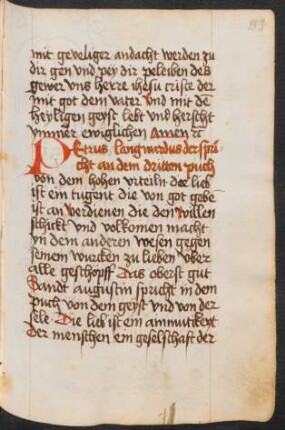 153
mit geveliger andacht werden zu
dir gen vnd pey dir peleiben des
gewer vns herre ihesu criste der
mit got dem vater Vnd mit dē
heyligen geyst lebt vnd herscht
ymmer ewiglichen Amen ꝛc
Petrus langwardus der spri
cht an dem dritten puch
von dem hohen vrteiln die lieb
ist ein tugent die von got gebē
ist an verdienen die den willen
schickt vnd volkomen macht
yn dem anderen wesen gegen
seinem wurcken zu lieben vber
alle geschopff Das oberst gut
Sandt augustin spricht in dem
puch von dem geyst vnd von der
sele Die lieb ist ein anmutikeyt
der menschen ein geselschaft der